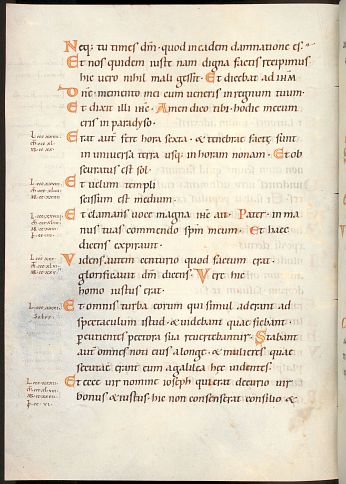 Neq; tu times dm̄ · quod in eadem damnatione es ·
Et nos quidem iuste nam digna factis recipimus
hic vero nihil mali gessit · Et dicebat ad ih̄m
Dn̄e · memento mei cum veneris in regnum tuum ·
Et dixit illi ih̄c · Amen dico tibi · hodie mecum
eris in paradyso ·
Erat aut̄ fere hora sexta · & tenebrae factę sunt
in universa terra usq; in horam nonam · Et ob
scuratus est sol ·
Et velum templi
scissum est medium ·
Et clamans voce magna ih̄c ait · Pater · in ma
nus tuas commendo spm̄ meum · Et haec
dicens expiravit ·
Videns autem centurio quod factum erat ·
glorificavit dm̄ dicens · Vere hic
homo iustus erat ·
Et omnis turba eorum qui simul aderant ad
spectaculum istud · & videbant quae fiebant ·
percutientes pectora sua revertebantur · Stabant
aut̄ omnes noti eius a longe · & mulieres quae
secutae erant eum a galilea hęc videntes ·
Et ecce vir nomine ioseph qui erat decurio vir
bonus & iustus · hic non consenserat consilio &